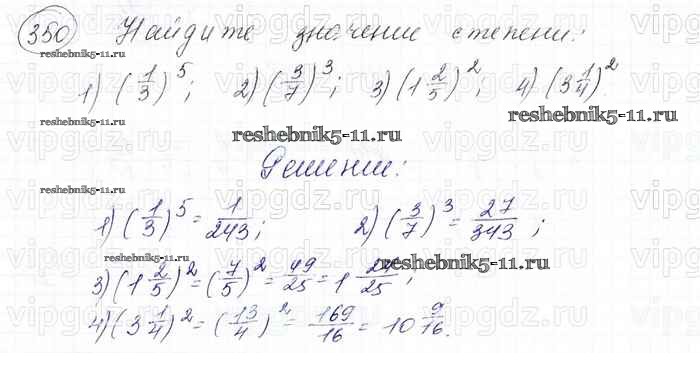 350 Найдите значение степени:
1) (1/3)^5; 2) (3/7)^3; 3) (1 2/5)^2; 4) (3 1/4)^2.
Решение:
1) (1/3)^5 = 1/243; 2) (3/7)^3 = 27/343;
3) (1 2/5)^2 = (7/5)^2 = 49/25 = 1 24/25;
4) (3 1/4)^2 = (13/4)^2 = 169/16 = 10 9/16.
reshebnik5-11.ru
reshebnik5-11.ru
reshebnik5-11.ru
reshebnik5-11.ru
reshebnik5-11.ru
reshebnik5-11.ru
vipgdz.ru